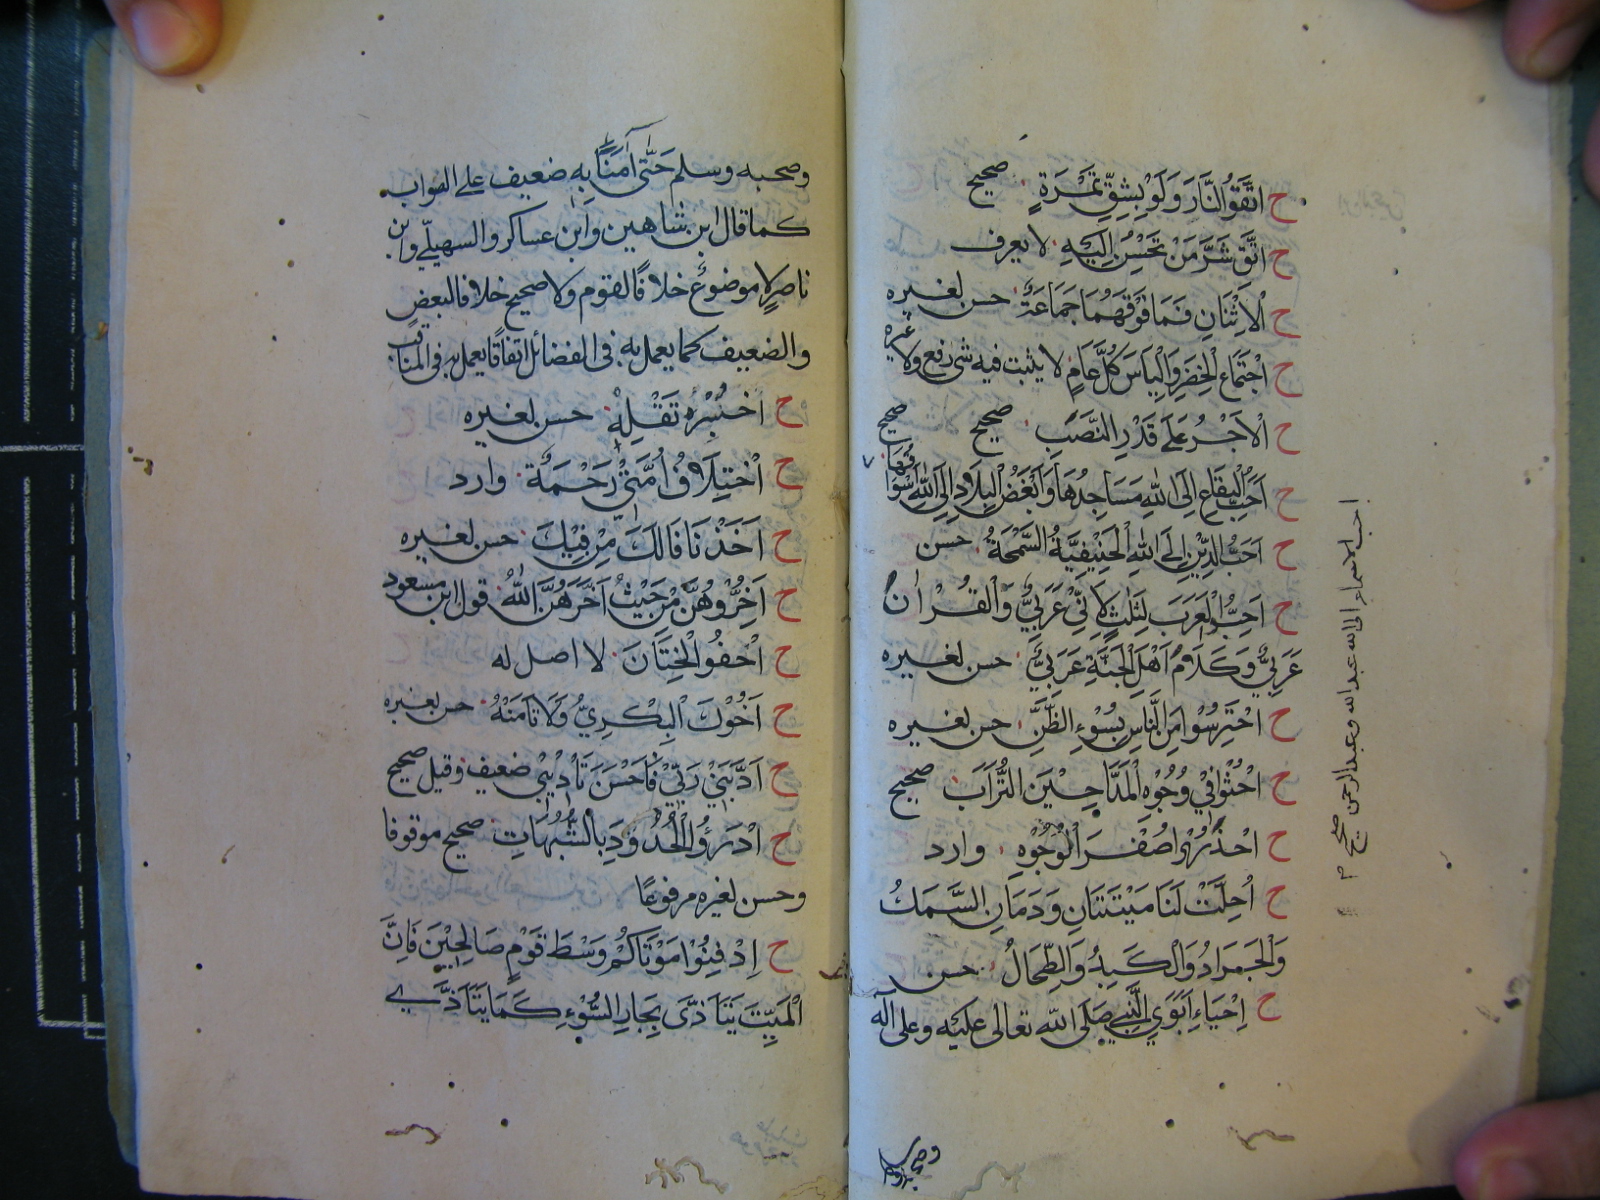 ح اتَّقُوا النَّارَ وَلَوْ بِشِقِّ تَمْرَةٍ صحيح
ح اتَّقِ شَرَّ مَنْ تُحْسِنُ إِلَيْهِ لا يعرف
ح الْاِثْنَانِ فَمَا فَوْقَهُمَا جَمَاعَةٌ حسن لغيره
ح اجْتِمَاع الْخَضِرِ وَالْيَاسَ كُلَّ عَامٍ لا يثبت فيه شئ رفع ولا غيره
ح الْاَجْرُ عَلَى قَدْرِ النَّصَبِ صحيح
ح اَحَبُّ الْبِقَاعِ اِلَى اللهِ مَسَاجِدُهَا وَاَبْغَضُ الْبِلَادِ اِلَى اللهِ اَسْوَاقُهَا صحيح
ح اَحَبُّ الدِّيْنِ اِلَى اللهِ الْحَنِيْفِيَّةُ السَّمْحَةُ حسن
ح اَحِبُّوا الْعَرَبَ لِثَلٰثٍ لِاَنِّيْ عَرَبِيٌّ وَالْقُرْاٰنُ
عَرَبِيٌّ وَكَلَامُ اَهْلِ الْجَنَّةِ عَرَبِيٌّ حسن لغيره
ح احْتَرِسُوْا مِنَ النَّاسِ بِسُوْءِ الظَّنِّ حسن لغيره
ح احْثُوْا فِيْ وُجُوْهِ الْمَدَّاحِيْنَ التُّرَابَ صحيح
ح احْذَرُوْا صُفْرَ الْوُجُوْهِ وارد
ح اُحِلَّتْ لَنَا مَيْتَتَانِ وَدَمَانِ السَّمَكُ
وَالْجَرَادُ وَالْكَبِدُ وَالطِّحَالُ حسن
ح اِحْيَاءِ اَبَوَيِ النَّبِيِّ صَلَّى اللّٰه تعالى عليه وعلى آله
احب الاسماء الى الله عبد الله وعبد الرحمن صحيح م
وصحبه وسلم حَتّٰى آمَنَا بِهِ ضعيف على الصواب
كما قال ابن شاهين وابن عساكر والسهيلي وابن
ناصر لا موضوع خلافًا لقوم ولا صحيح خلافا لبعض
والضعيف كما يعمل به فى الفضائل اتفاقًا يعمل به فى المناقب
ح اُخْبُرْ تَقْلِهْ حسن لغيره
ح اخْتِلَافُ اُمَّتِيْ رَحْمَةٌ وارد
ح اَخَذْنَا فَالَكَ مِنْ فِيْكَ حسن لغيره
ح اَخِّرُوْهُنَّ مِنْ حَيْثُ اَخَّرَهُنَّ اللّٰهُ قول ابن مسعود
ح اخْفُوا الْخِتَانَ لا اصل له
ح اَخُوْكَ الْبِكْرِيُّ وَلَا تَأمَنْهُ حسن لغيره
ح اَدَّبَنِيْ رَبِّيْ فَاَحْسَنَ تَاْدِيْبِيْ ضعيف وقيل صحيح
ح ادْرَؤُا الْحُدُوْدَ بِالشُّبُهَاتِ صحيح موقوفا
وحسن لغيره مرفوعًا
ح اِدْفِنُوْا مَوْتَاكُمْ وَسْطَ قَوْمٍ صَالِحِيْنَ فَاِنَّ
الْمَيِّتَ يَتَاَذّٰى بِجَارِ السُّوْءِ كَمَا يَتَاَذّٰى